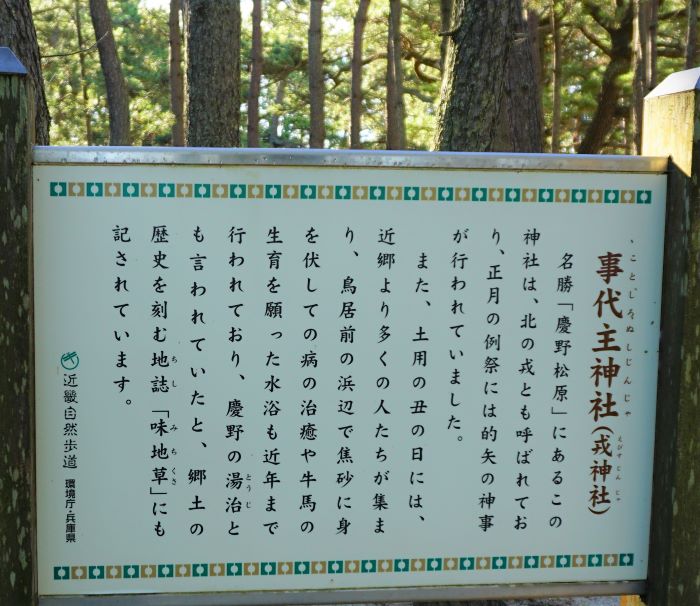 事代主神社(戎神社)
ことしろぬしじんじゃ
えびすじんじゃ
名勝「慶野松原」にあるこの
神社は、北の戎とも呼ばれてお
り、正月の例祭には的矢の神事
が行われていました。
また、土用の丑の日には、
近郷より多くの人たちが集ま
り、鳥居前の浜辺で焦砂に身
を伏しての病の治癒や牛馬の
生育を願った水浴も近年まで
行われており、慶野の湯治と
とうじ
も言われていたと、郷土の
歴史を刻む地誌「味地草」にも
ちし
みちくさ
記されています。
近畿自然歩道
環境庁・兵庫県